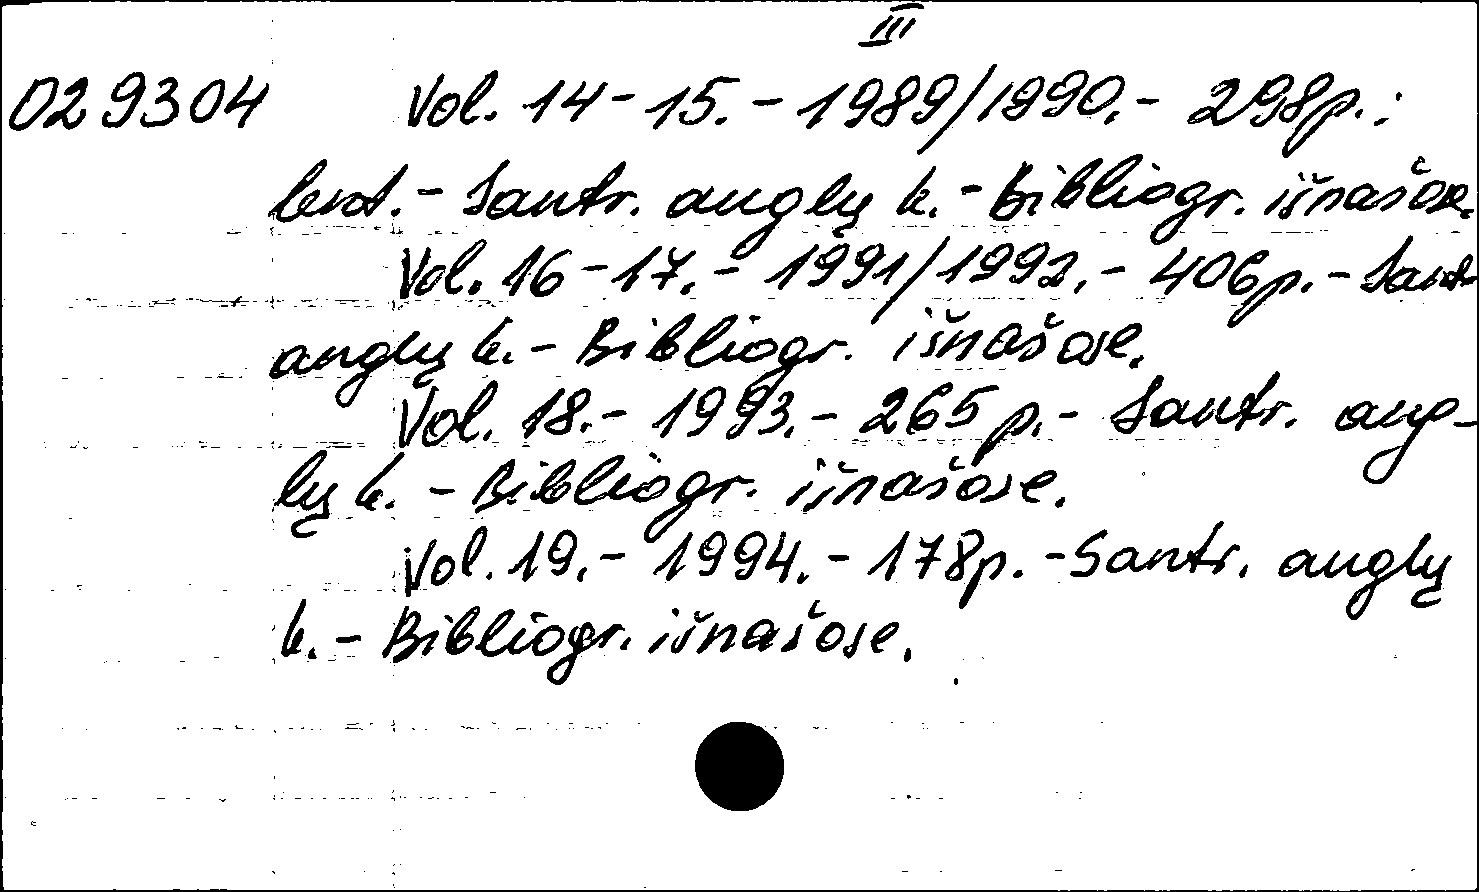 III
029304 Vol. 14-15. - 1989/1990. - 298p. :
lent. - Santr. anglų k. - Bibliogr. išnašose.
Vol. 16-17. - 1991/1992. - 406p. - Santr.
anglų k. - Bibliogr. išnašose.
Vol. 18. - 1993. - 265 p. - Santr. ang-
lų k. - Bibliogr. išnašose.
Vol. 19. - 1994. - 178p. - Santr. anglų
k. - Bibliogr. išnašose.